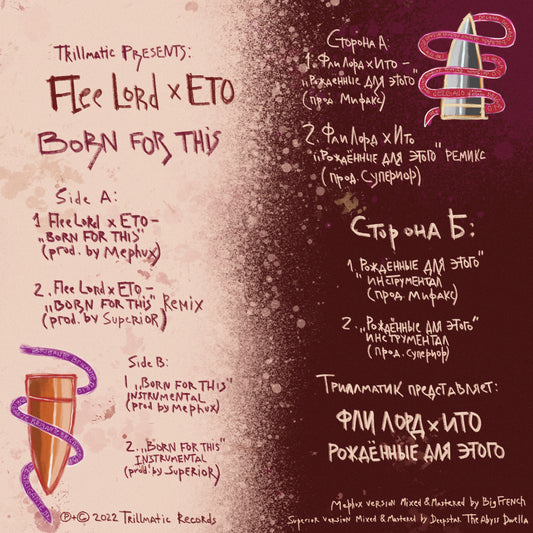 Trillmatic Presents:
Flee Lord x ETO
Born For This
Side A:
1 Flee Lord x ETO –
„Born For This"
(prod. by Mephux)
2. Flee Lord x ETO –
„Born For This" Remix
(prod. by Superior)
Side B:
1 „Born For This"
Instrumental
(prod by Mephux)
2. „Born For This"
Instrumental
(prod. by Superior)
Ⓟ+© 2022 Trillmatic Records
Сторона А:
1. Фли Лорд х Ито –
„Рожденные для этого"
(прод. Мифакс)
2. Фли Лорд х Ито
„Рождённые для этого" Ремикс
(прод. Супериор)
Сторона Б:
1. Рождённые для этого"
" инструментал
(прод. Мифакс)
2. „Рождённые для этого"
инструментал
(прод. Супериор)
Триллматик представляет:
Фли Лорд х Ито
Рождённые для этого
Mephux version Mixed & Mastered by Big French
Superior version Mixed & Mastered by Deepstar The Abyss Dwella